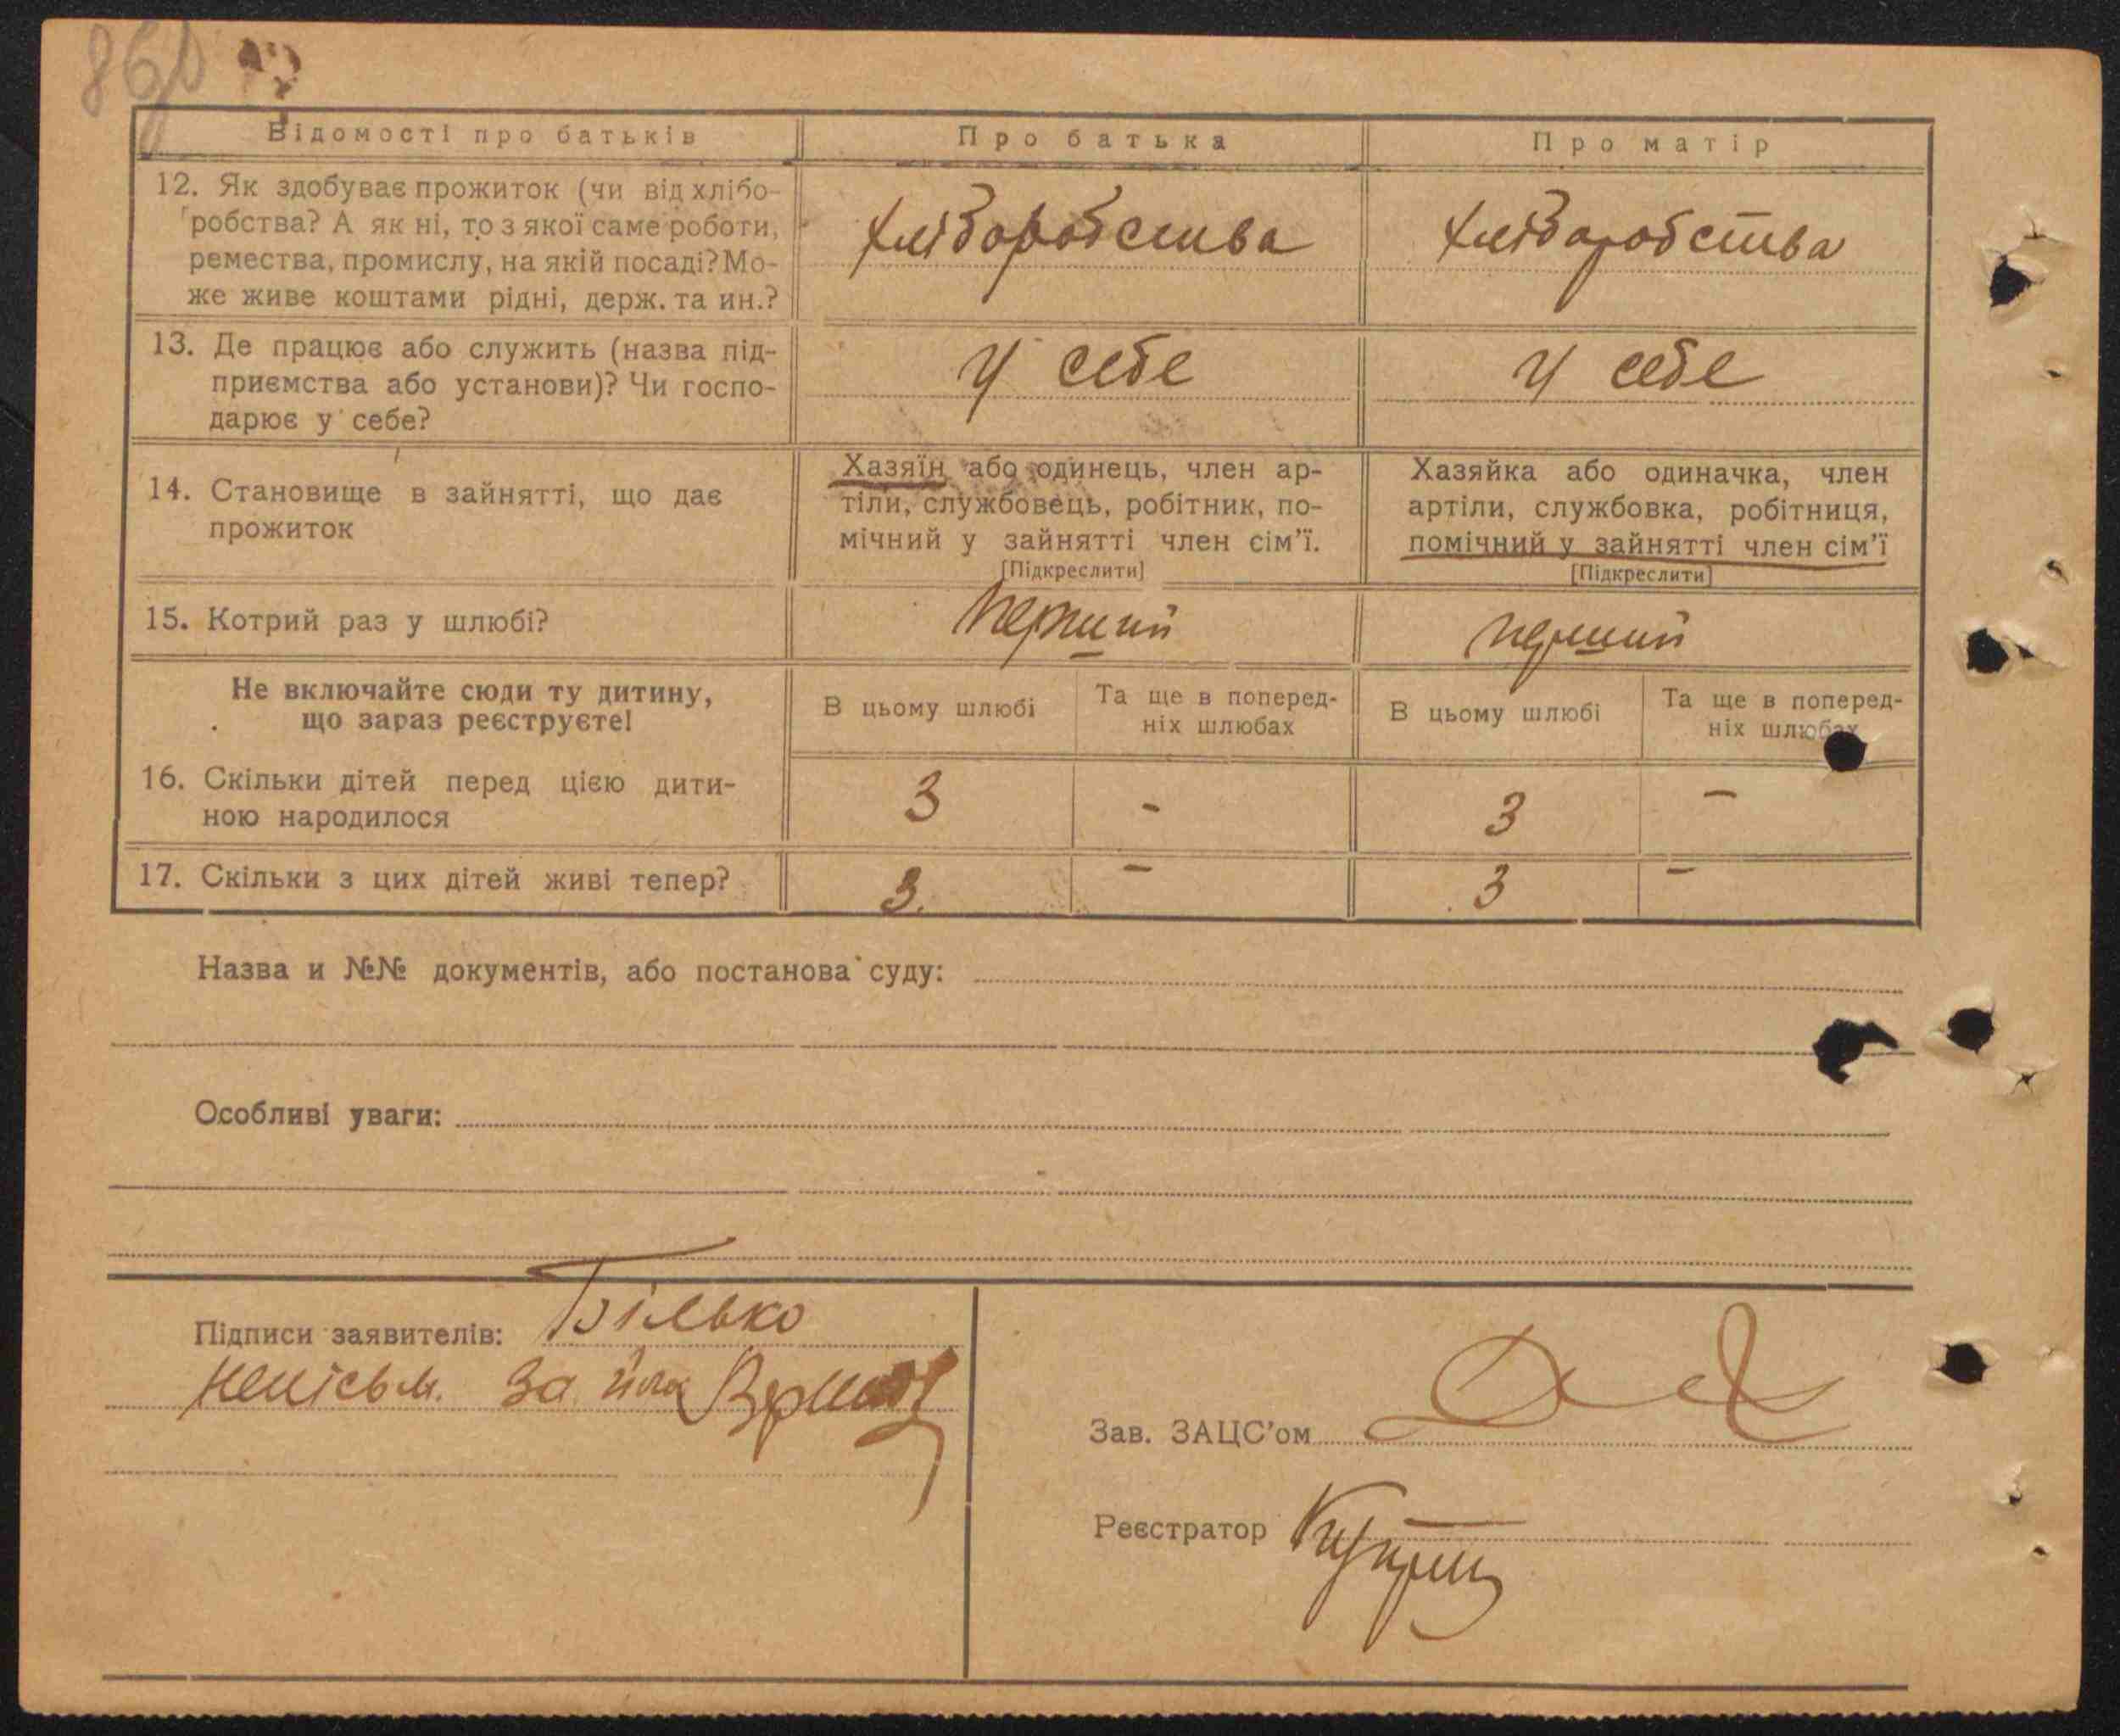 Відомості про батьків Про батька Про матір
12. Як здобуває прожиток (чи від хлібо-
робства? А як ні, то з якої саме роботи,
ремества, промислу, на якій посаді? Мо-
же живе коштами рідні, держ. та ин.?
хліборобства хліборобства
13. Де працює або служить (назва під-
приємства або установи)? Чи госпо-
дарює у себе?
у себе у себе
14. Становище в зайнятті, що дає
прожиток
Хазяїн або одинець, член ар-
тіли, службовець, робітник, по-
мічний у зайнятті член сім'ї.
[Підкреслити]
Хазяйка або одиначка, член
артіли, службовка, робітниця,
помічний у зайнятті член сім'ї
[Підкреслити]
15. Котрий раз у шлюбі? перший перший
Не включайте сюди ту дитину,
що зараз реєструєте!
В цьому шлюбі
Та ще в поперед-
ніх шлюбах
В цьому шлюбі
Та ще в поперед-
ніх шлюбах
16. Скільки дітей перед цією дити-
ною народилося
3 - 3 -
17. Скільки з цих дітей живі тепер? 3. - 3 -
Назва и №№ документів, або постанова суду:
Особливі уваги:
Підписи заявителів: Білько
неписьм. за
Зав. ЗАЦС'ом
Реєстратор